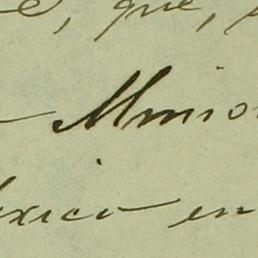 , que,
Minis
éxico en